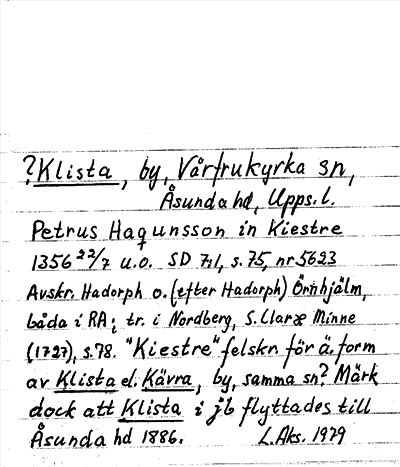 ?Klista, by, Vårfrukyrka sn,
Åsunda hd, Upps.l.
Petrus Haqunsson in Kiestre
1356 22/7 u.o. SD 7:1, s.75, nr 5623
Avskr. Hadorph o. (efter Hadorph) Örnhjälm,
båda i RA; tr. i Nordberg, S. Claræ Minne
(1727), s.78. "Kiestre" felskr. för ä. form
av Klista el. Kävra, by, samma sn? Märk
dock att Klista i jb flyttades till
Åsunda hd 1886. L.Aks. 1979